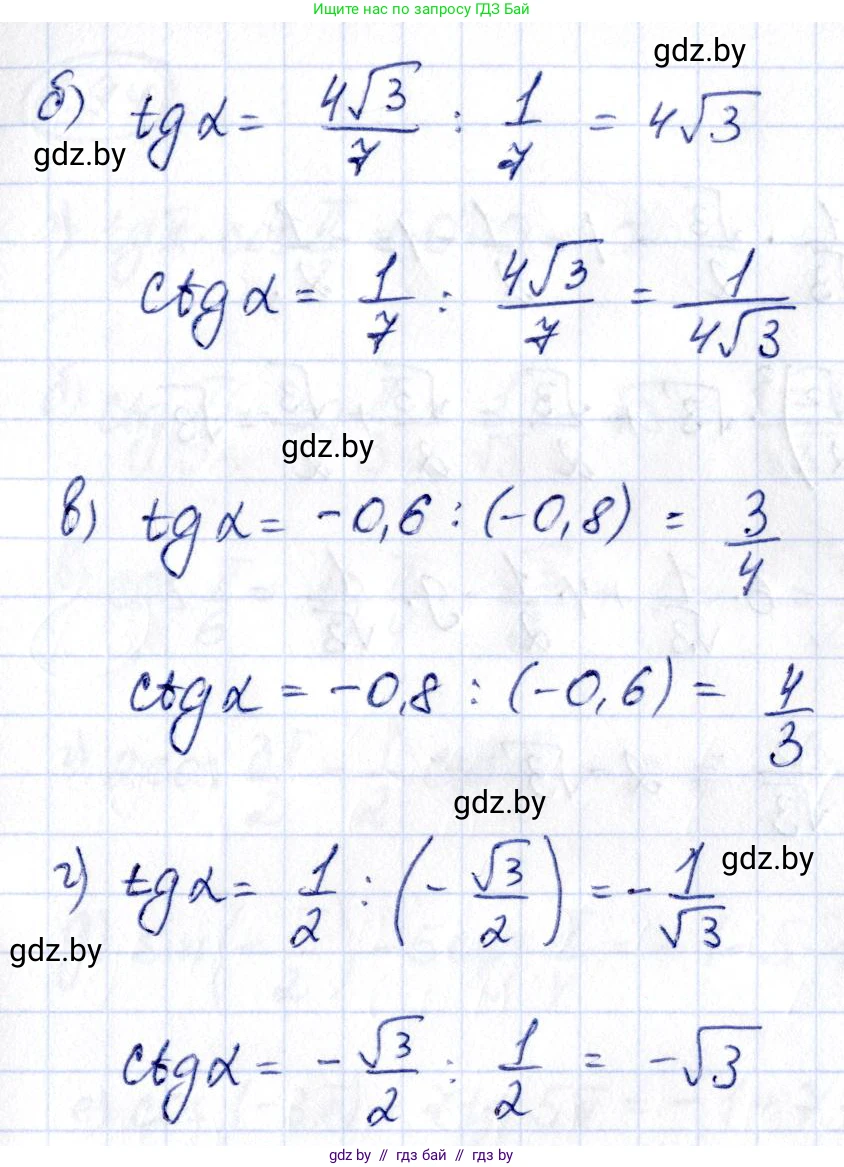 Ищите нас по запросу ГДЗ Бай
gdz.by
б) tg α = 4√3/7 : 1/7 = 4√3
gdz.by
ctg α = 1/7 : 4√3/7 = 1/4√3
gdz.by
в) tg α = -0,6 : (-0,8) = 3/4
ctg α = -0,8 : (-0,6) = 4/3
gdz.by
г) tg α = 1/2 : (-√3/2) = -1/√3
gdz.by
gdz.by
ctg α = -√3/2 : 1/2 = -√3
gdz.by // гдз бай // gdz.by